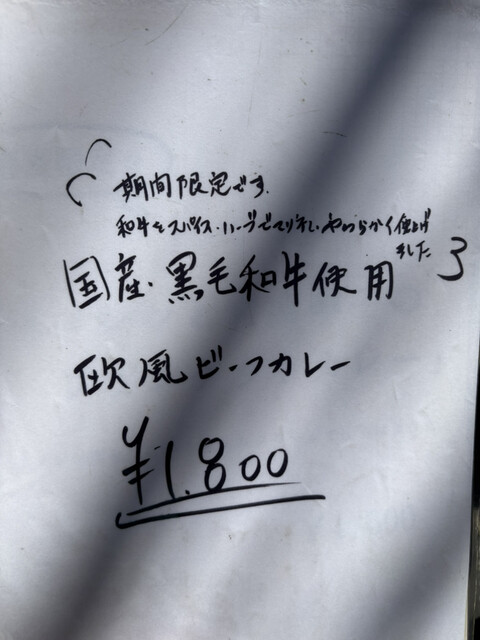 期間限定です。
和牛をスパイス・ハーブでマリネしやわらかく仕上げ
ました
国産・黒毛和牛使用
欧風ビーフカレー
¥1.800